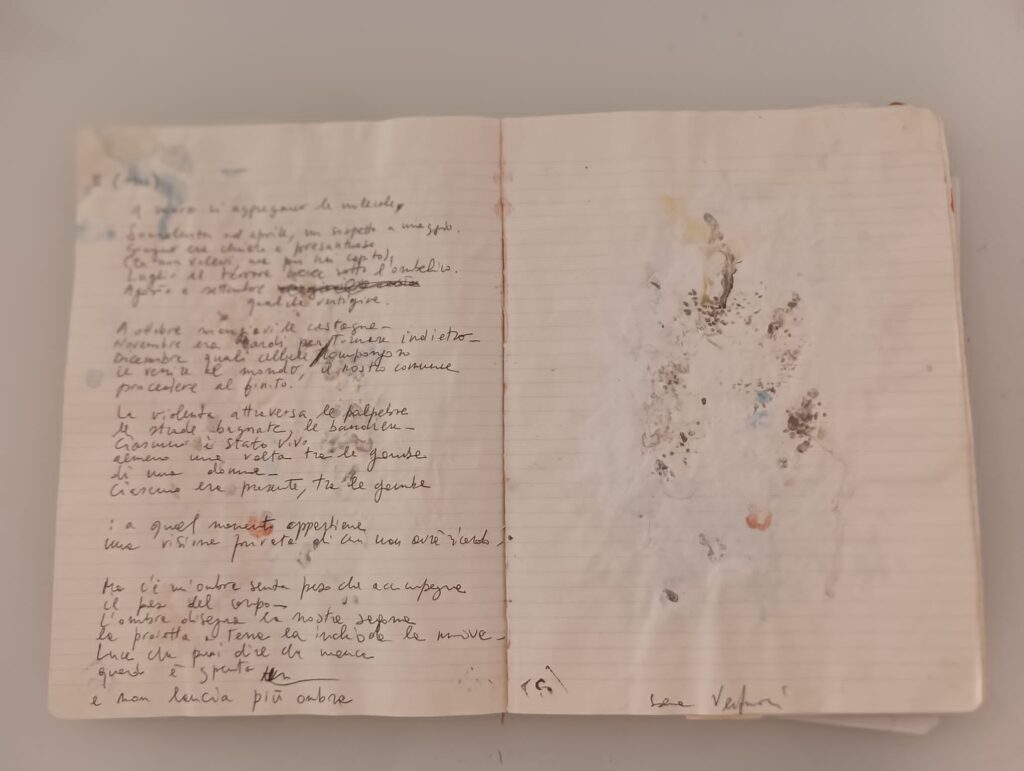 A marzo si aggregano le molecole,
Sonnolenta ad aprile, un sospetto a maggio.
Giugno era chiaro e presuntuoso
(tu non volevi, ma poi hai capito),
Luglio il terrore sotto l'ombelico.
Agosto e settembre
qualche vertigine.
A ottobre mangiavi le castagne_
Novembre era tardi per tornare indietro_
Dicembre quali cellule compongono
il venire al mondo, il nostro comune
procedere al finito.
La violenta attraversa le palpebre
le strade bagnate, le bandiere_
Ciascuno è stato vivo
almeno una volta tra le gambe
di una donna_
Ciascuno era presente, tra le gambe
: a quel momento appartiene
una visione privata di cui non avrà ricordo
Ma c'è un'ombra senza peso che accompagna
il peso del corpo_
L'ombra disegna la nostra sagoma
la proietta a terra la inchioda la muove_
Luce che puoi dire che manca
quando è spenta
e non lancia più ombre